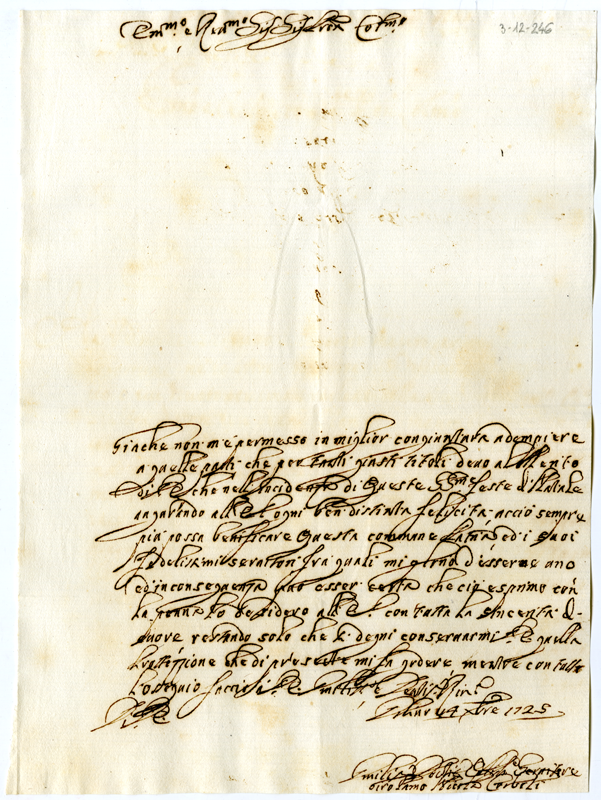 Em.mo e Rev.mo Sig. Sig. Pron Col.mo
3-12-246
Giache non m'è permesso in miglior congiuntura adempiere
a quelle parti che per tanti giusti titoli devo al Merito
di V.E. che nell'occidenza di queste SS.me feste di Natale
augurando all'E.V. ogni ben distinta felicità acciò sempre
più possa benificare questa commune ed i suoi
fedelissimi servitori fra quali mi glorio d'esserne uno
ed in conseguenza può esser certa che ciò esprimo con
la penna lo desidero all'E.V. con tutta la sincerità di
cuore restando solo che si degni conservarmi quella
Protezzione che di presente mi fa godere mentre con tutto
l'ossequio faccio
V.E.
14 Xbre 1725
Umiliss.o
Girolamo Nicola